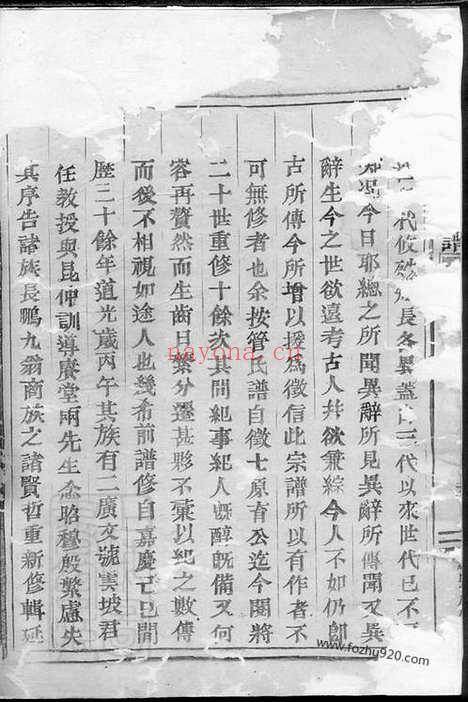 譜
代攸 長各異蓋 三代以來世代已不
今日耶總之所聞異辭所見異辭所傳聞又異
辭生今之世欲遠考古人幷欲兼綜今人不如仍卽
古所傳今所增以援爲徵信此宗譜所以有作者不
可無修者也余按管氏譜自徵七原有公迄今閱將
二十世重修十餘次其間紀事紀人旣醇旣備又何
容再贅然而生齒日繁分遷甚夥不彙以紀之數傳
而後不相視如途人也幾希前譜修自嘉慶己巳閱
歷三十餘年道光歲丙午其族有二廣文號雲坡君
任教授與昆仲訓導 堂兩先生念昭穆殷繁慮失
其序告諸族長鵬九翁商族之諸賢哲重新修輯延
nayona.cn
www.fozhu920.com